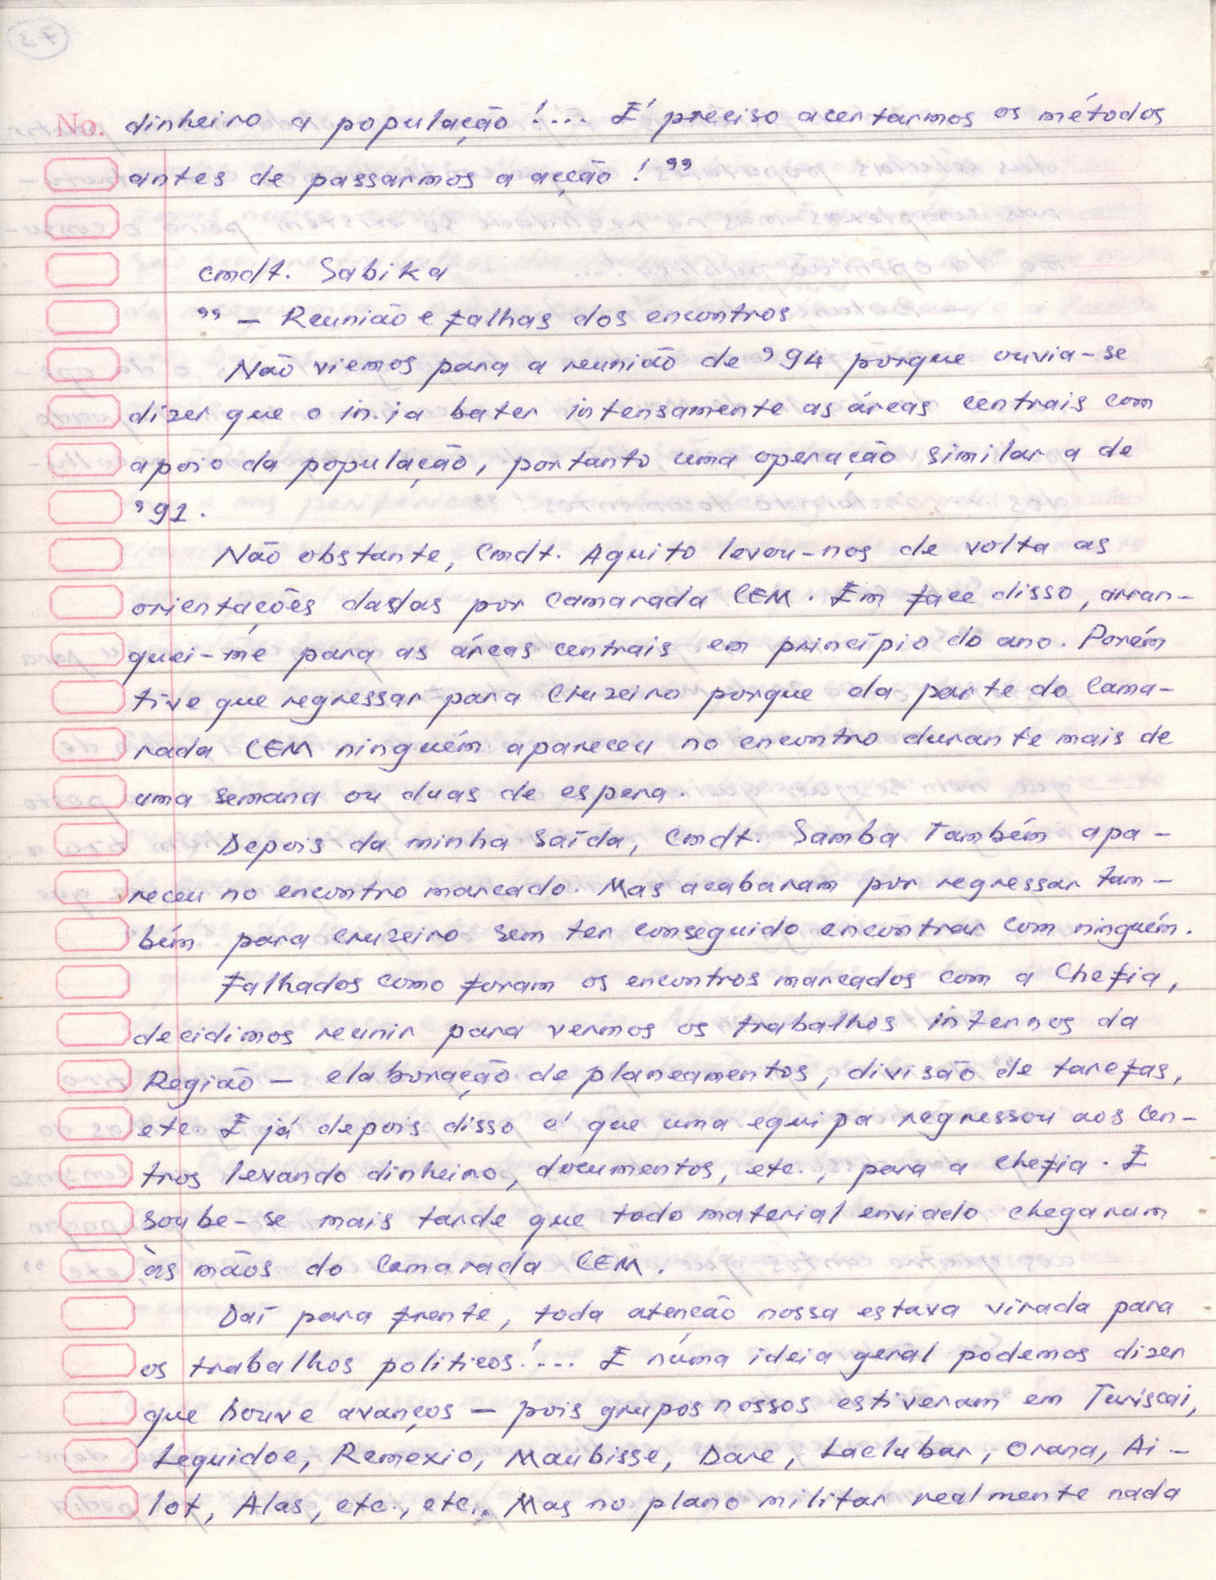 No. dinheiro a população!... É preciso acertarmos os métodos
antes de passarmos a acção!"
cmdt. Sabika
" — Reunião e falhas dos encontros
Não viemos para a reunião de '94 porque ouvia-se
dizer que o in. ia bater intensamente as áreas centrais com
apoio da população, portanto uma operação similar a de
'91.
Não obstante, Cmdt. Aquito levou-nos de volta as
orientações dadas por Camarada CEM. Em face disso, arran-
quei-me para as áreas centrais em princípio do ano. Porém
tive que regressar para Cruzeiro porque da parte do Cama-
rada CEM ninguém apareceu no encontro durante mais de
uma semana ou duas de espera.
Depois da minha saída, Cmdt. Samba também apa-
receu no encontro marcado. Mas acabaram por regressar tam-
bém para cruzeiro sem ter conseguido encontrar com ninguém.
Falhados como foram os encontros marcados com a Chefia,
decidimos reunir para vermos os trabalhos internos da
Região — elaboração de planeamentos, divisão de tarefas,
etc. E já depois disso é que uma equipa regressou aos Cen-
tros levando dinheiro, documentos, etc., para a chefia. E
soube-se mais tarde que todo material enviado chegaram
às mãos do Camarada CEM.
Daí para frente, toda atenção nossa estava virada para
os trabalhos politicos!... E numa ideia geral podemos dizer
que houve avanços — pois grupos nossos estiveram em Turiscai,
Lequidoe, Remexio, Maubisse, Dare, Laclubar, Orana, Ai-
lot, Alas, etc., etc., Mas no plano militar realmente nada